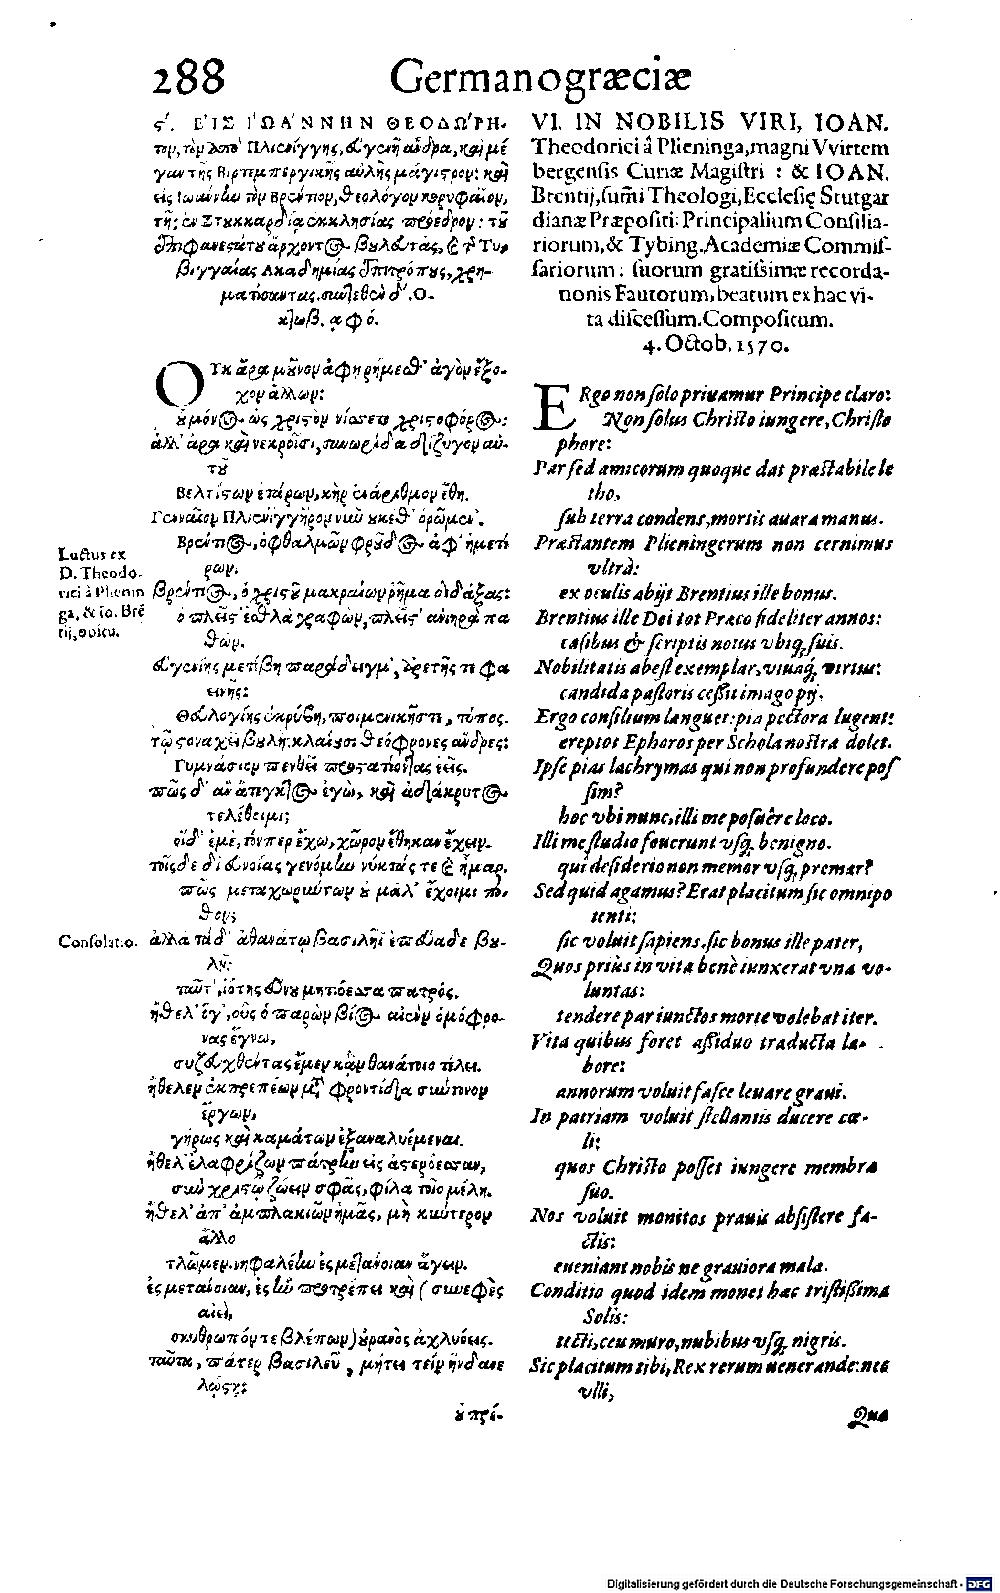 288 Germanograeciæ
ϛ'. ΕἸΣ ἸΩΆΝΝΗΝ ΘΕΟΔΩΡΗ-
γαν τῆς Βιρτεμπεργικῆς αὐλῆς μάγιστρον: καὶ
τῆς ἐν Στυκκαρδίᾳ ἐκκλησίας πρόεδρον: τοῦ
βιγγαίας Ακαδημίας ἐπιτρόπους, χρη-
ΟΥκ ἄρα μοῦνον ἀφῃρήμεθ' ἀγὸν ἔξο-
χον ἄλλων:
οὐ μόνος ὡς χριστὸν νίσσετο χριστοφόρος:
τοῦ
Βελτίστων ἑτάρων, κὴρ ἐνάριθμον ἔθη.
Γενναῖον Πλιενιγγῆρον νῦν οὐκέθ' ὁρῶμεν.
Βρέντιος, ὀφθαλμῶν φροῦδος ἀφ' ἡμετέ
ρων.
Βρέντιος, ὁ χριστοῦ μακραίων ῥῆμα διδάξας:
ὁ πλεῖστ' ἐσθλὰ γραφὼν, πλεῖστ' ἀνιηρὰ πα
θών.
εὐγενίης μετέβη παράδειγμ', ἀρετῆς τι φα
εινῆς:
Θεολογίης ἐκρύβη, ποιμενικῆς τι, τύπος.
τῷ στοναχεῖ βουλή. κλαίουσι θεόφρονες ἄνδρες:
Γυμνάσιον πενθεῖ προστατέοντας ἑεῖς.
πῶς δ' ἂν ἄπεγκτος ἐγὼ, καὶ ἀδάκρυτος
τελέθοιμι;
οἵδ' ἐμὲ, τόνπερ ἔχω, χῶρον ἔθηκαν ἔχειν.
τοῖς δὲ δι' εὐνοίας γενόμην νύκτάς τε καὶ ἦμαρ.
πῶς μεταχωρούντων οὐ μάλ' ἔχοιμι πό-
θον;
ἀλλὰ τάδ' ἀθανάτῳ βασιλῆϊ ἐπεύαδε βου-
λῇ:
ἤθελ' ἑγ', οὓς ὁ παρὼν βίος αἰὲν ὁμόφρο-
νας ἔγνω,
συζευχθέντας ἔμεν κᾀν θανάτοιο τέλει.
ἔργων,
γήρως καὶ καμάτων ἐξαναλυέμεναι.
ἤθελ' ἐλαφρίζων πάτρην εἰς ἀστερόεσσαν,
σὺν χριστῷ ζώειν σφᾶς, φίλα τοῖο μέλη.
ἤθελ' ἀπ' ἀμπλακιῶν ἡμᾶς, μὴ κύντερον
ἄλλο
τλῶμεν. νηφαλέην ἐς μετάνοιαν ἄγων.
ἐς μετάνοιαν, ἐς ἣν προτρέπει καὶ (συνεφὲς
αἰεὶ,
σκυθρωπόν τε βλέπων) οὐρανὸς ἀχλυόεις.
ταῦτα, πάτερ βασιλεῦ, μήτει τεΐν ἥνδανε
λῴστῃ:
οὐ πρέ-
VI. IN NOBILIS VIRI, IOAN.
Theodorici â Plieninga, magni Vvirtem
bergensis Curiæ Magistri : & IOAN.
Brentij, sum̃i Theologi, Ecclesię Stutgar
dianæ Præpositi: Principalium Consilia-
riorum, & Tybing. Academiæ Commis-
sariorum : suorum gratissimæ recorda-
nonis Fautorum, beatum ex hac vi-
ta discessum. Compositum.
4. Octob. 1570.
ERgo non solo priuamur Principe claro:
Non solus Christo iungere, Christo
phore:
Par sed amicorum quoque dat præstabile le
tho,
sub terra condens, mortis auara manus.
Præstantem Plieningerum non cernimus
vltrà:
ex oculis abijt Brentius ille bonus.
Brentius ille Dei tot Præco fideliter annos:
casibus & scriptis notus vbiq́; suis.
Nobilitatis abest exemplar, viuaq́; virtus:
candida pastoris cessit imago pij.
Ergo consilium languet: pia pectora lugent:
ereptos Ephoros per Schola nostra dolet.
Ipse pias lachrymas qui non profundere pos
sim?
hoc vbi nunc, illi me posuêre loco.
Illi me studio fouerunt vsq́; benigno.
qui desiderio non memor vsq́; premar?
Sed quid agamus? Erat placitum sic omnipo
tenti:
sic voluit sapiens. sic bonus ille pater,
Quos priùs in vita benè iunxerat vna vo-
luntas:
tendere par iunctos morte volebat iter.
Vita quibus foret assiduo traducta la-
bore:
annorum voluit fasce leuare graui.
In patriam voluit stellantis ducere cœ-
li:
quos Christo posset iungere membra
suo.
Nos voluit monitos prauis absistere fa-
ctis:
eueniant nobis ne grauiora mala.
Conditio quod idem monet hac tristissima
Solis:
tecti, ceu muro, nubibus vsq́; nigris.
Sic placitum tibi, Rex rerum uenerande: nec
vlli,
Qua
Luctus ex
D. Theodo-
rici à Plienin
ga, & io. Brẽ
tij, obitu.
Consolatio.
Digitalisierung gefördert durch die Deutsche Forschungsgemeinschaft - DFG